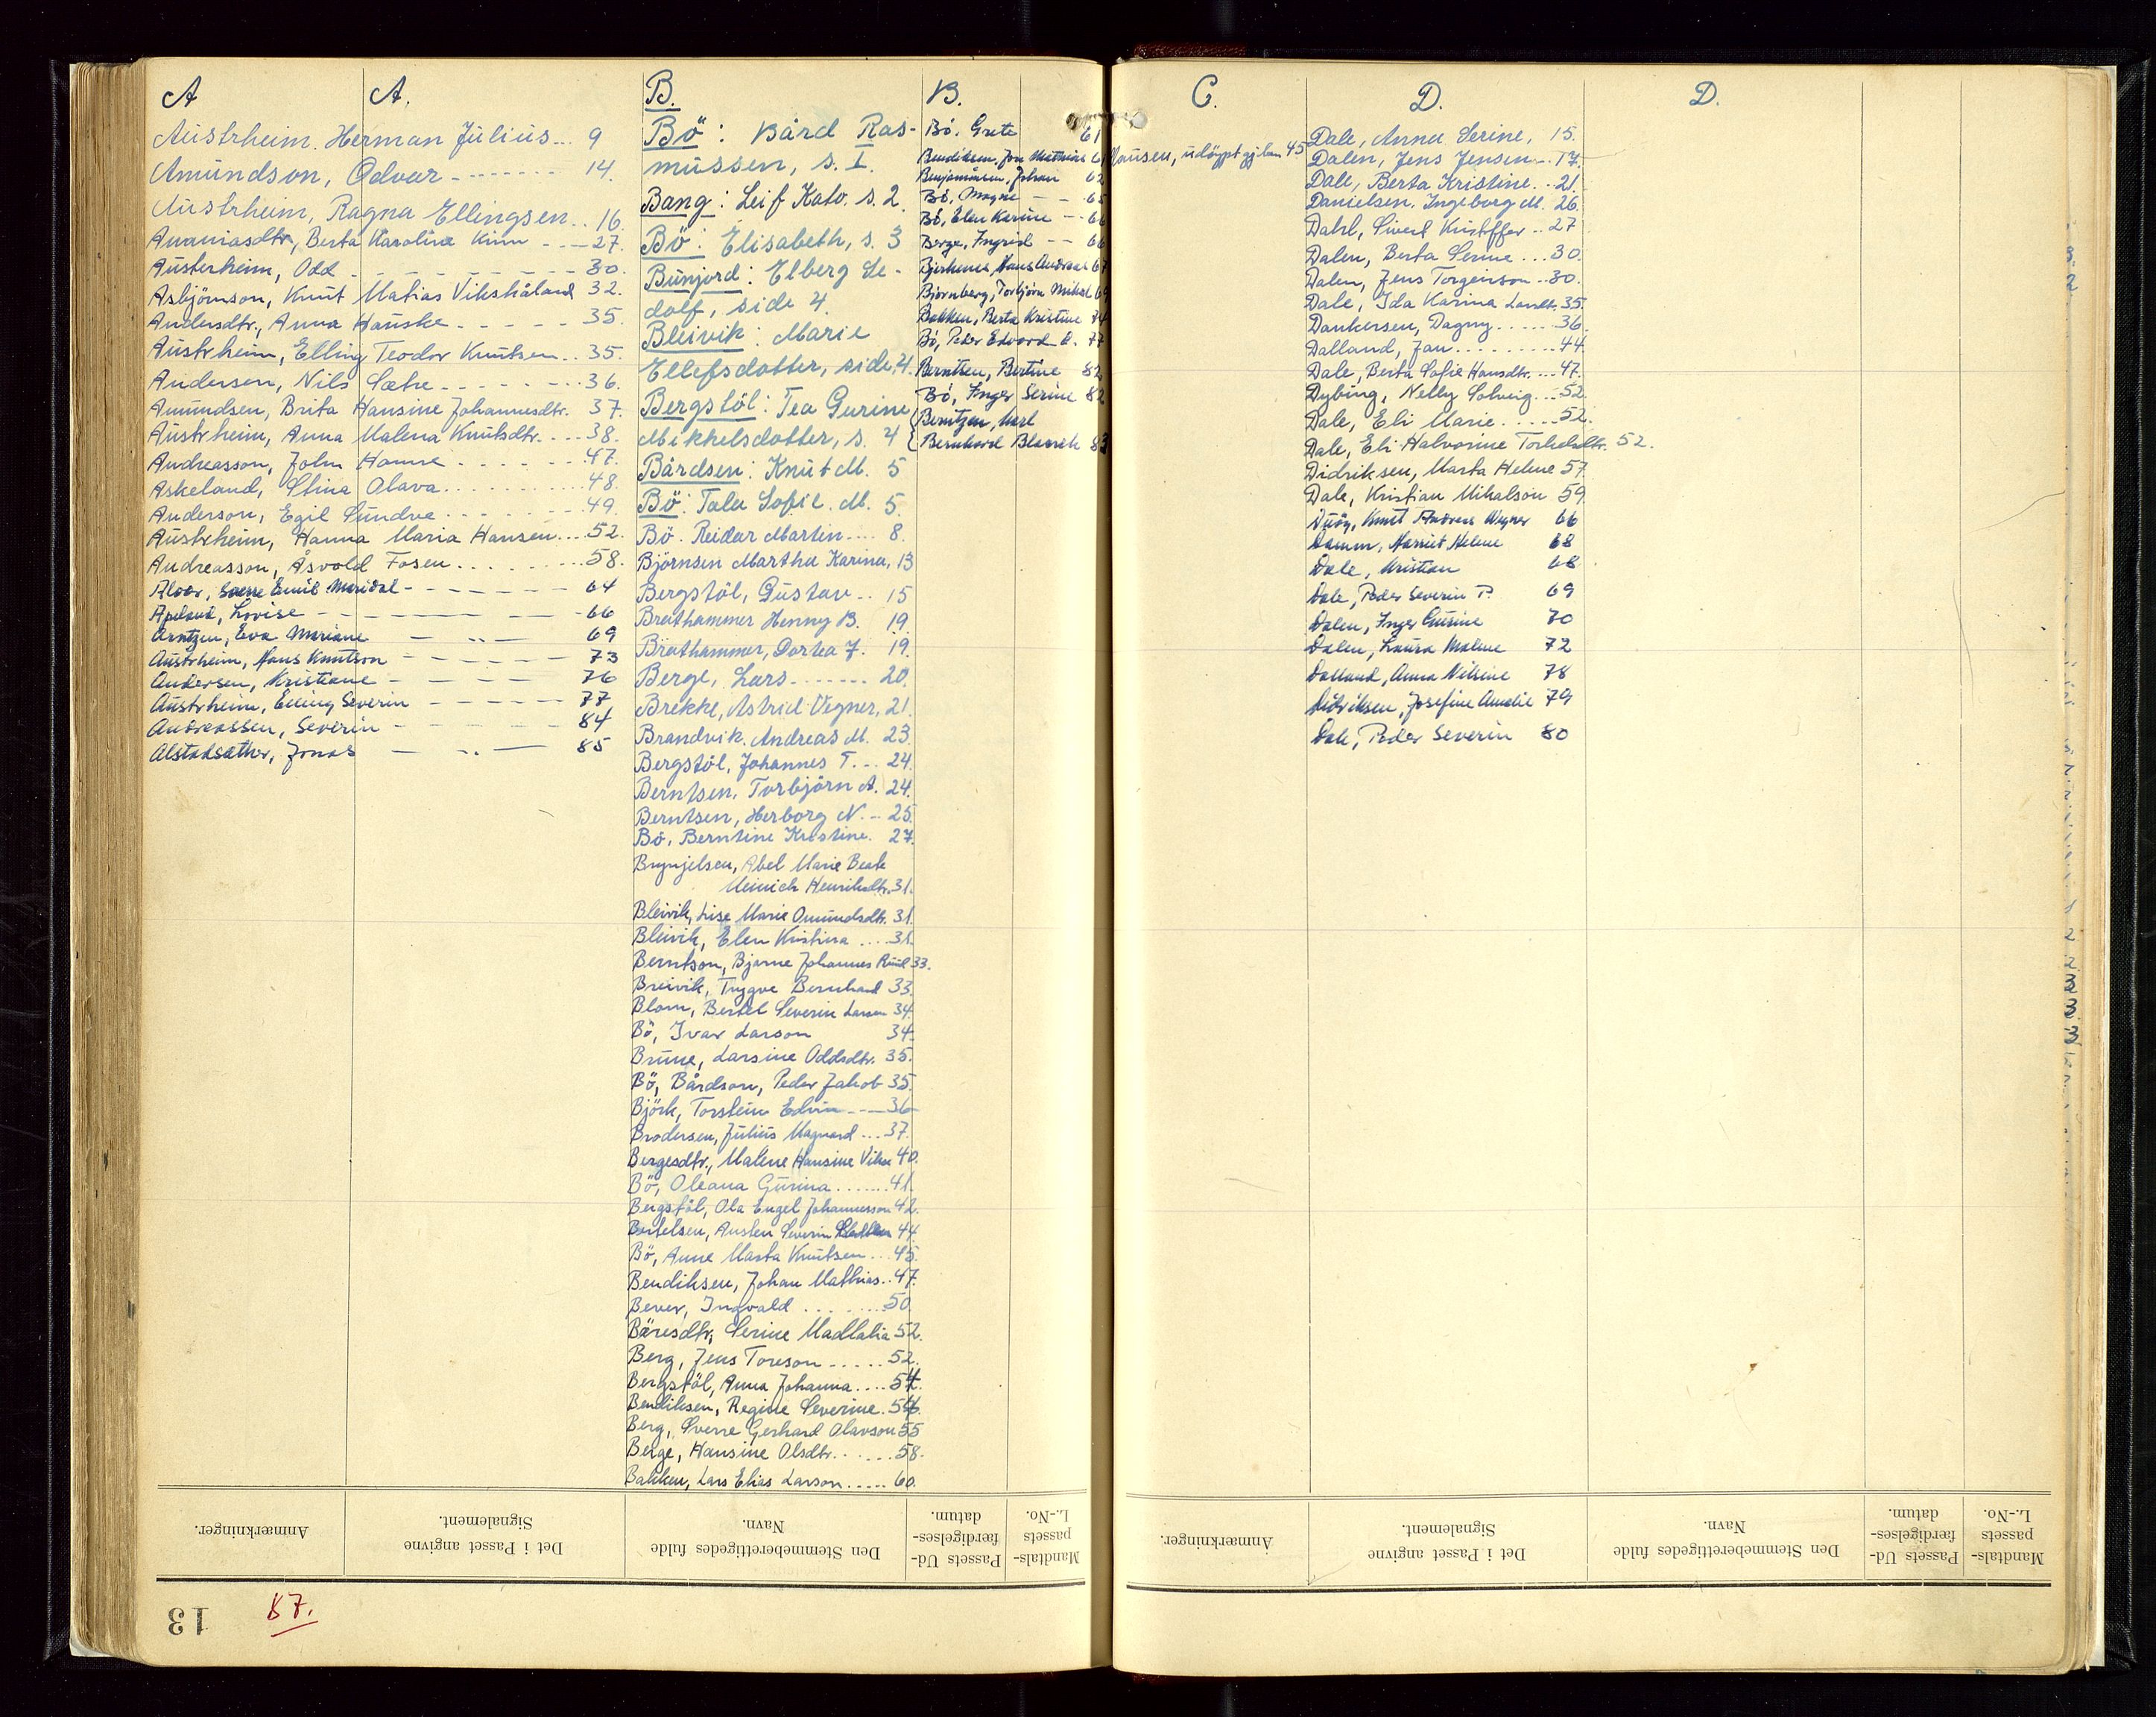 A
A.
Austrheim. Herman Julius... 9
Amundson, Odvar - - - - - - - 14.
Austrheim, Ragna Ellingsen.. 16.
Ananiasdtr, Berta Karoline Kinn - - - 27.
Austerheim, Odd - - - - - - - 30.
Asbjörnson, Knut Matias Vikshåland 32.
Andersdtr., Anna Hauske - - - - - 35.
Austrheim, Elling Teodor Knutsen.. 35.
Andersen, Nils Sæthe - - - - - - - 36.
Amundsen, Brita Hansine Johannesdtr. 37.
Austrheim, Anna Malena Knutsdtr. ... 38.
Andreasson, John Hanne - - - - - - 47.
Askeland, Stina Olava . . . . . . . 48.
Anderson, Egil Sundve - - - - - - 49.
Austrheim, Hanna Maria Hansen... 52.
Andreasson, Åsvold Fosen . . . . . . . 58.
Emil Meridal - - - - - - - 64
Apeland, Lovise - - - - - 66
Arntzen, Eva Mariane - " - 69
Austrheim, Hans Knutson - - - - - - 73
Andersen, Kristiane - - - - - 76
Austrheim, Elling Severin - - - - - 77
Andreassen, Severin - - - - 84
Alstadsæther, Jonas - " - 85
B.
Bö: Bård Ras-
mussen, s. I.
Bang: Leif Kato. s. 2.
Bö: Elisabeth, s. 3
Bunjord: Elberg Le-
dolf, side 4.
Bleivik: Marie
Ellefsdotter, side 4.
Bergstöl: Tea Gurine
Mikkelsdotter, s. 4
Bårdsen: Knut M. 5
Bö: Tala Sofie. M. 5.
Bö. Reidar Martin.... 8.
Björnsen Martha Karina, 13
Bergstöl, Gustav.. 15
Breithammer Henny B. 19.
Breithammer, Dortea J. 19.
Berge, Lars....... 20.
Brekke, Astrid Vegner, 21.
Brandvik. Andreas M. 23.
Bergstöl, Johannes T. .. 24.
Berntsen, Torbjörn A. 24.
Berntsen, Herborg N. - 25.
Bö, Berntine Kristine. 27.
Brynjelsen, Abel Marie Beate
Meinich Henriksdtr. 31.
Bleivik, Lise Marie Omundsdtr. 31.
Bleivik, Elen Kristina .... 31.
Berntson, Bjarne Johannes Ruud 33.
Breivik, Trygve Bernhard 33.
Blom, Bertel Severin Larsen 34.
Bö, Ivar Larson 34.
Brune, Larsine Oddsdtr. 35.
Bö, Bårdson, Peder Jakob 35.
Björk, Torstein Edvin - - - 36
Brodersen, Julius Magnard ... 37.
Bergesdtr., Malene Hansine Vikse 40.
Bö, Oleana Gurina....... 41.
Bergstöl, Ola Engel Johannesson 42.
Bertelsen, Austen Severin 44.
Bö, Anne Marta Knutsen ... 45.
Bendiksen, Johan Mathias.. 47.
Bever, Ingvald ........ 50.
Bäresdtr, Serine Madlalia 52.
Berg, Jens Toreson ..... 52.
Bergstöl, Anna Johanna.... 54.
Bendiksen, Regine Severine. 54.
Berg, Sverre Gerhard Olavson 55
Berge, Hansine Olsdtr....... 58.
Bakken, Lars Elias Larson..... 60.
B.
Bö. Grete 61
Bendiksen, Jon Mathias 61
Benjaminsen, Johan 62
Bö, Magne - - 65
Bö, Elen Karine - - 66
Berge, Ingrid - - 66
Bjerknes, Hans Andreas 67
Bjørnberg, Torbjörn Mikal 69
Bakken, Berta Kristine 74
Bö, Peder Edvard A. 77
Berntsen, Bertine 82
Bö, Inger Serine 82
Berntzen, Karl
Bernhard Blaavik 83
C.
udöypt gj.ben 45
D.
Dale, Anna Serine, 15.
Dalen, Jens Jensen... 17.
Dale, Berta Kristine. .. 21.
Danielsen. Ingeborg M. 26.
Dahl, Sivert Kristffer .. 27
Dalen, Berta Serine ... 30.
Dalen, Jens Torgeirson .. 30.
Dale, Ida Karina Landt. 35.
Dankersen, Dagny...... 36.
Dalland, Jan ......... 44.
Dale, Berta Sofie Hansdtr. ... 47.
Dybing, Nelly Solveig... 52.
Dale, Eli Marie...... 52.
Dale, Eli Halvorine Torkelsdtr. 52.
Didriksen, Marta Helene 57.
Dale, Kristian Mikalson 59.
Knut Andreas Wegner 66
Damm, Harriet Helene 68
Dale, Kristian 68
Dale, Peder Severin P. 69
Dalen, Inger Gurine 70
Dalen, Laura Malene 72
Dalland, Anna Nilsine 78
Didriksen, Josefine Amalie 79
Dale, Peder Severin 80
D.
Anmærkninger.
Det i Passet angivne
Signalement.
Den Stemmeberettigedes fulde
Navn.
Passets Ud-
færdigelses-
datum.
Mandtals-
passets
L.-No.
Anmærkninger.
Det i Passet angivne
Signalement.
Den Stemmeberettigedes fulde
Navn.
Passets Ud-
færdigelses-
datum.
Mandtals-
passets
L.-No.
13
87.